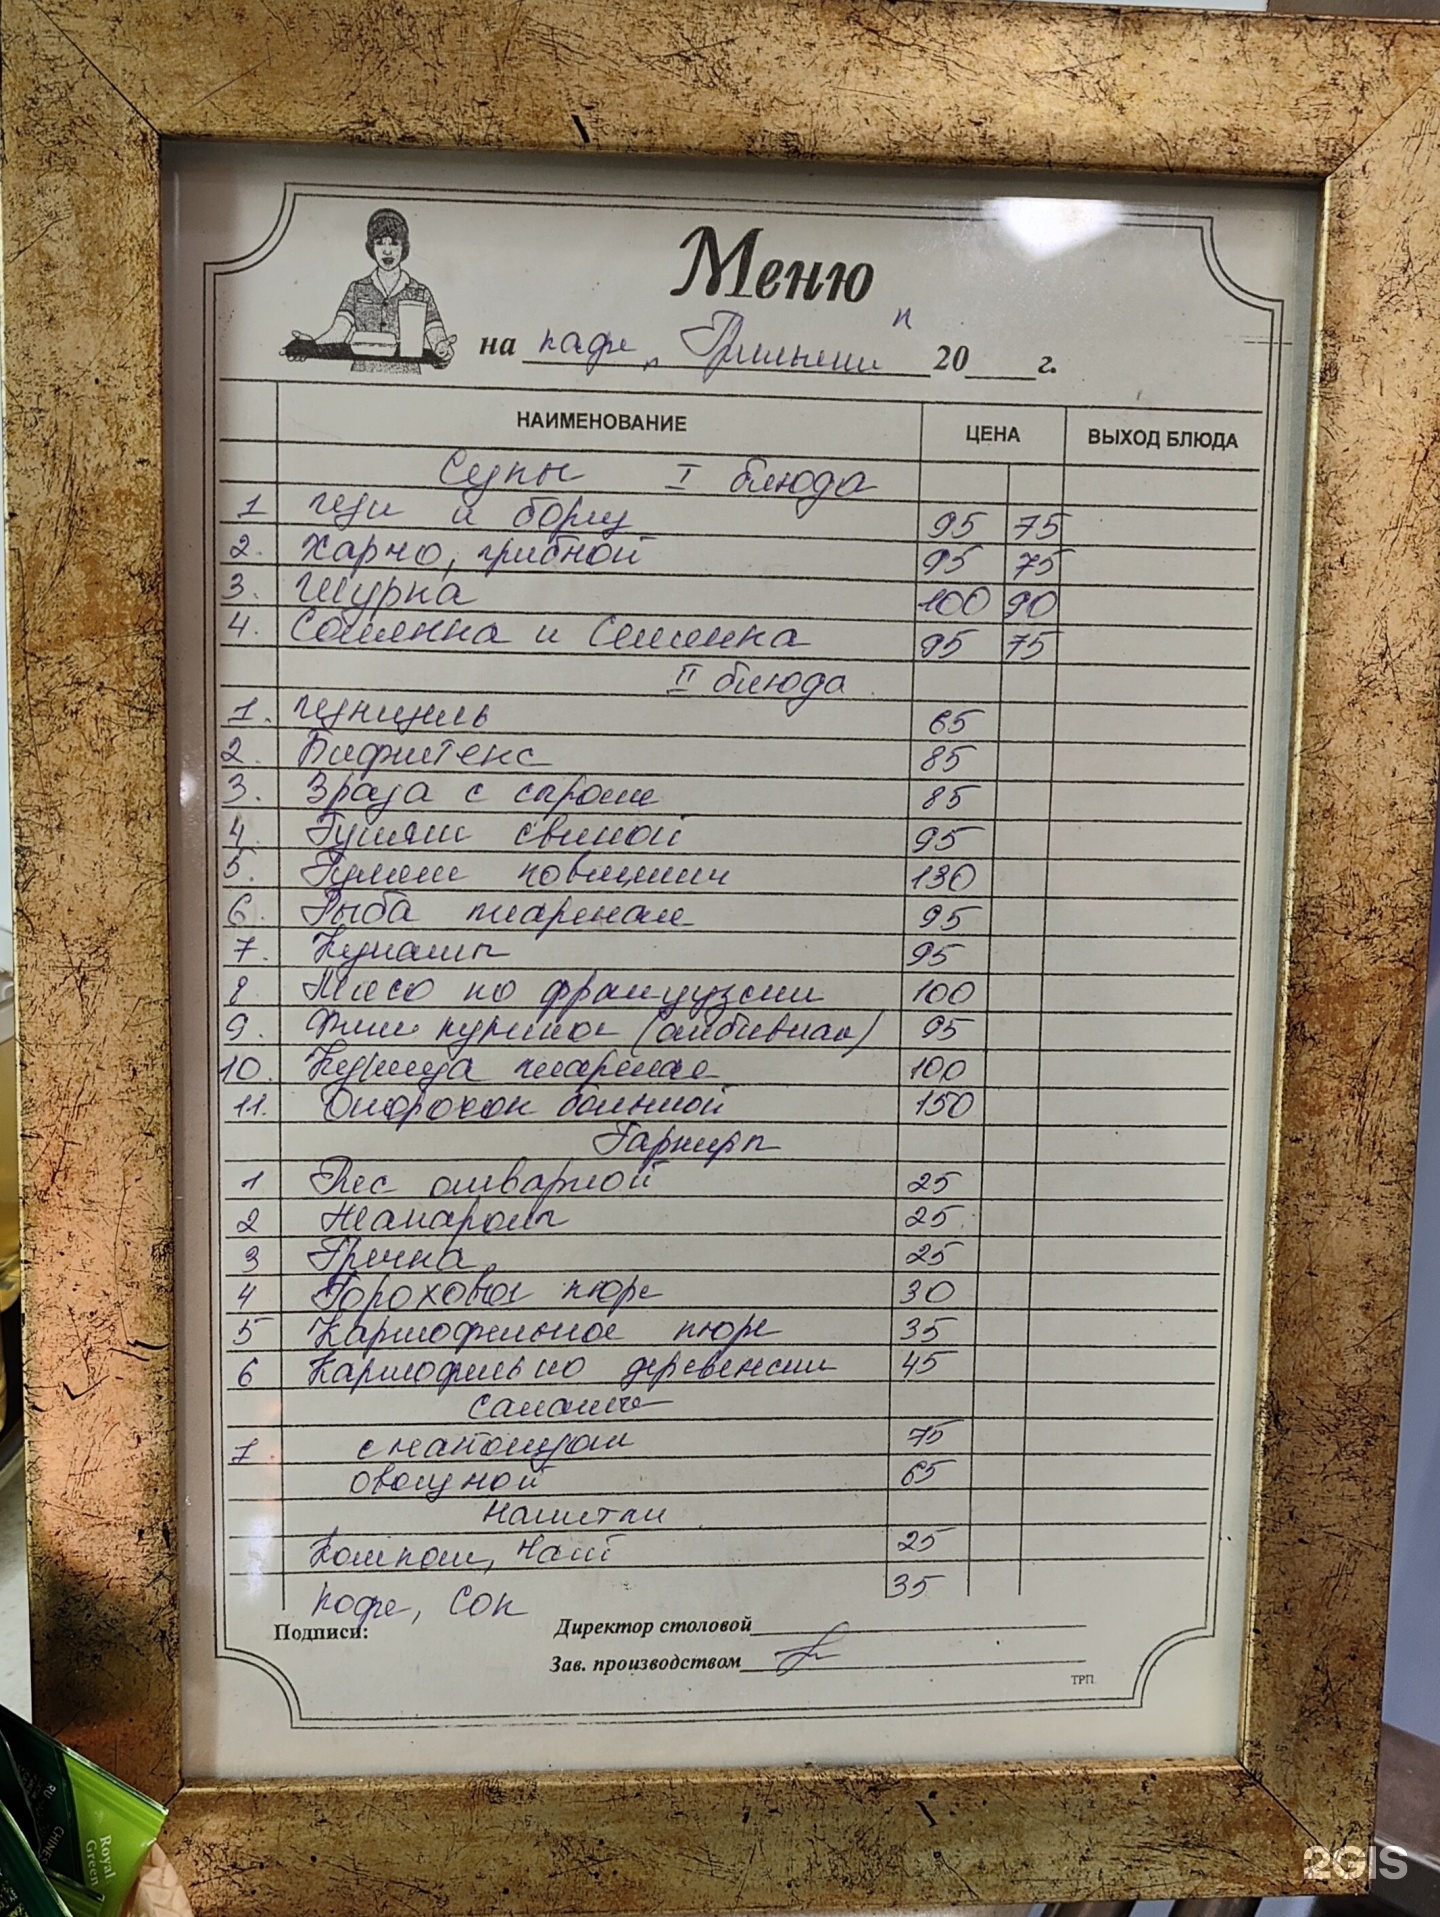 Меню
на кафе „ "
20 г.
НАИМЕНОВАНИЕ ЦЕНА ВЫХОД БЛЮДА
Супы I блюда
1 щи и борщ 95 75
2. Харчо, грибной 95 75
3. Шурпа 100 90
4. Солянка и 95 75
II блюда
1. шницель 65
2. Бифштекс 85
3. Зраза с сыром 85
4. Гуляш свиной 95
5. Гуляш говяжий 130
6. Рыба жареная 95
7. Купаты 95
8 Мясо по французски 100
9. Филе куриное (отбивная) 95
10. Курица жареная 100
11. Окорочок большой 150
Гарниры
1 Рис отварной 25
2 Макароны 25
3 Гречка 25
4 Гороховое пюре 30
5 Картофельное пюре 35
6 Картофель по деревенски 45
Салаты
1 с кальмаром 75
овощной 65
Напитки
Компот, Чай 25
Кофе, Сок 35
Подписи: Директор столовой
Зав. производством
ТРП.
Royal
Green
2GIS